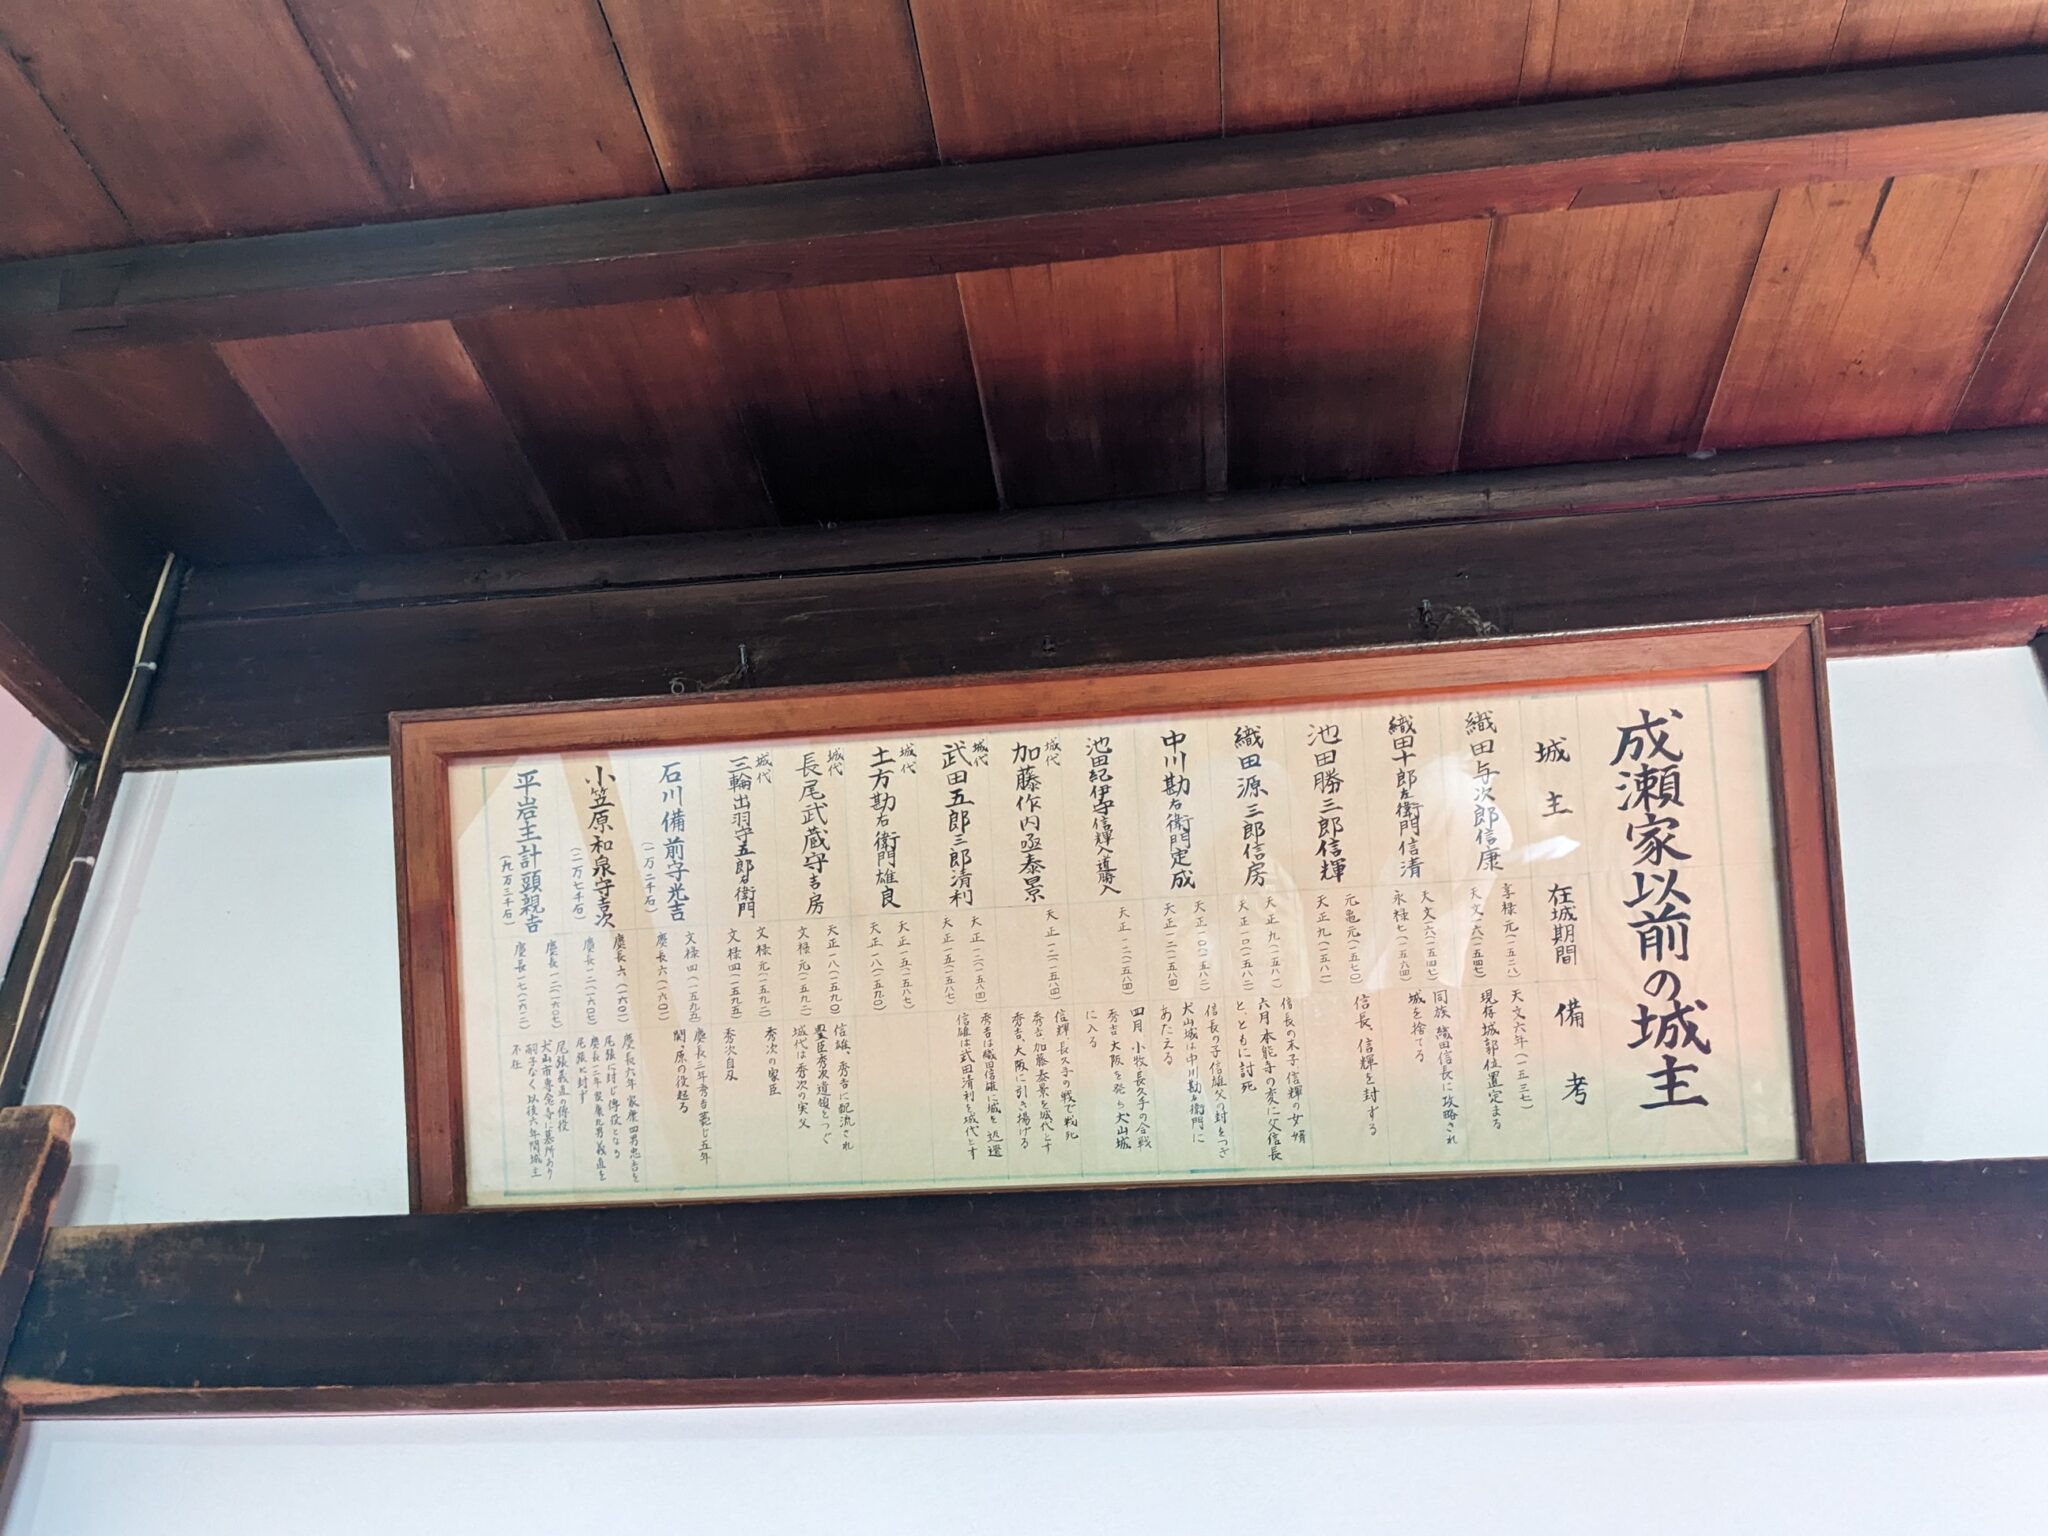 成瀬家以前の城主
城主
在城期間
備考
織田与次郎信康
享禄元(一五二八)
天文一六(一五四七)
天文六年(一五三七)
現存城郭位置定まる
織田十郎左衛門信清
天文一六(一五四七)
永禄七(一五六四)
同族織田信長に攻略され
城を捨てる
池田勝三郎信輝
元亀元(一五七〇)
天正九(一五八一)
信長、信輝を封ずる
織田源三郎信房
天正九(一五八一)
天正一〇(一五八二)
信長の末子信輝の女婿
六月本能寺の変に父信長
と、ともに討死
中川勘右衛門定成
天正一〇(一五八二)
天正一二(一五八四)
信長の子信雄父の封をつぎ
犬山城は中川勘右衛門に
あたえる
池田紀伊守信輝入道勝入
天正一二(一五八四)
四月小牧長久手の合戦
秀吉大阪を発ち犬山城
に入る
城代
加藤作内亟泰景
天正一二(一五八四)
信輝、長久手の戦で戦死
秀吉加藤泰景を城代とす
秀吉、大阪に引き揚げる
城代
武田五郎三郎清利
天正一二(一五八四)
天正一五(一五八七)
秀吉は織田信雄に城を返還
信雄は武田清利を城代とす
城代
土方勘右衛門雄良
天正一五(一五八七)
天正一八(一五九〇)
城代
長尾武蔵守吉房
天正一八(一五九〇)
文禄元(一五九二)
信雄、秀吉に配流され
豊臣秀次遺領をつぐ
城代は秀次の実父
城代
三輪出羽守五郎右衛門
文禄元(一五九二)
文禄四(一五九五)
秀次の家臣
秀次自及
石川備前守光吉
(一万二千石)
文禄四(一五九五)
慶長六(一六〇一)
慶長三年秀吉薨じ五年
関ヶ原の役起る
小笠原和泉守吉次
(二万七千石)
慶長六(一六〇一)
慶長一二(一六〇七)
慶長六年家康四男忠吉を
尾張に封じ傅役となる
慶長十二年家康九男義直を
尾張に封ず
平岩主計頭親吉
(九万三千石)
慶長一二(一六〇七)
慶長一七(一六一二)
尾張義直の傅役
犬山市専念寺に墓所あり
嗣子なく以後六年間城主
不在